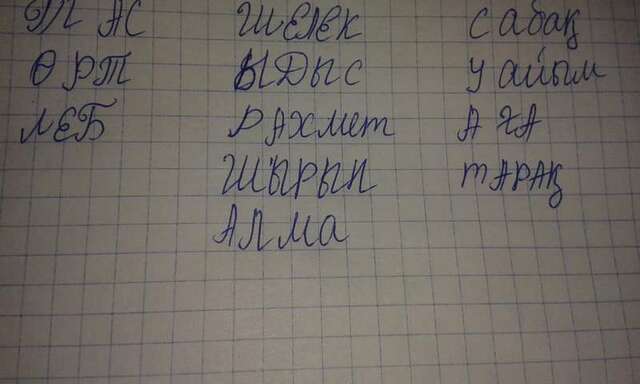 ТАС ШЕЛЕК сабақ
ӨРТ ЫДЫС уайым
ЛЕБ РАХМЕТ АҒА
ШЫРЫН ТАРАҚ
АЛМА